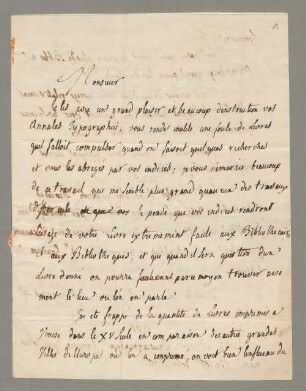 Monsieur
J'ai lu avec un grand plaisir et beaucoup d'instruction vos
Annales Typographiq, vous rendes inutile une foule de livres
qu'il falloit compulser quand on faisoit quelques recherches
et vous les abreges par vos indices; je vous remercie beaucoup
de ce travail qui me semble plus grand qu'aucun des travaux
d'Hercule je pense que vos indices rendront
l'usage de votre Livre extremement facile aux Bibliothecaires
et aux Bibliotheques, et que quand il sera question d'un
Livre donné on pourra par ce moyen trouver aise
ment le lieu ou l'on en parle.
J'ai eté frappé de la quantité de livres imprimes a
Venise dans le XV siecle en comparaison des autres grandes
Villes de l'Europe ou l'on a imprimé, on voit bien l'influence du